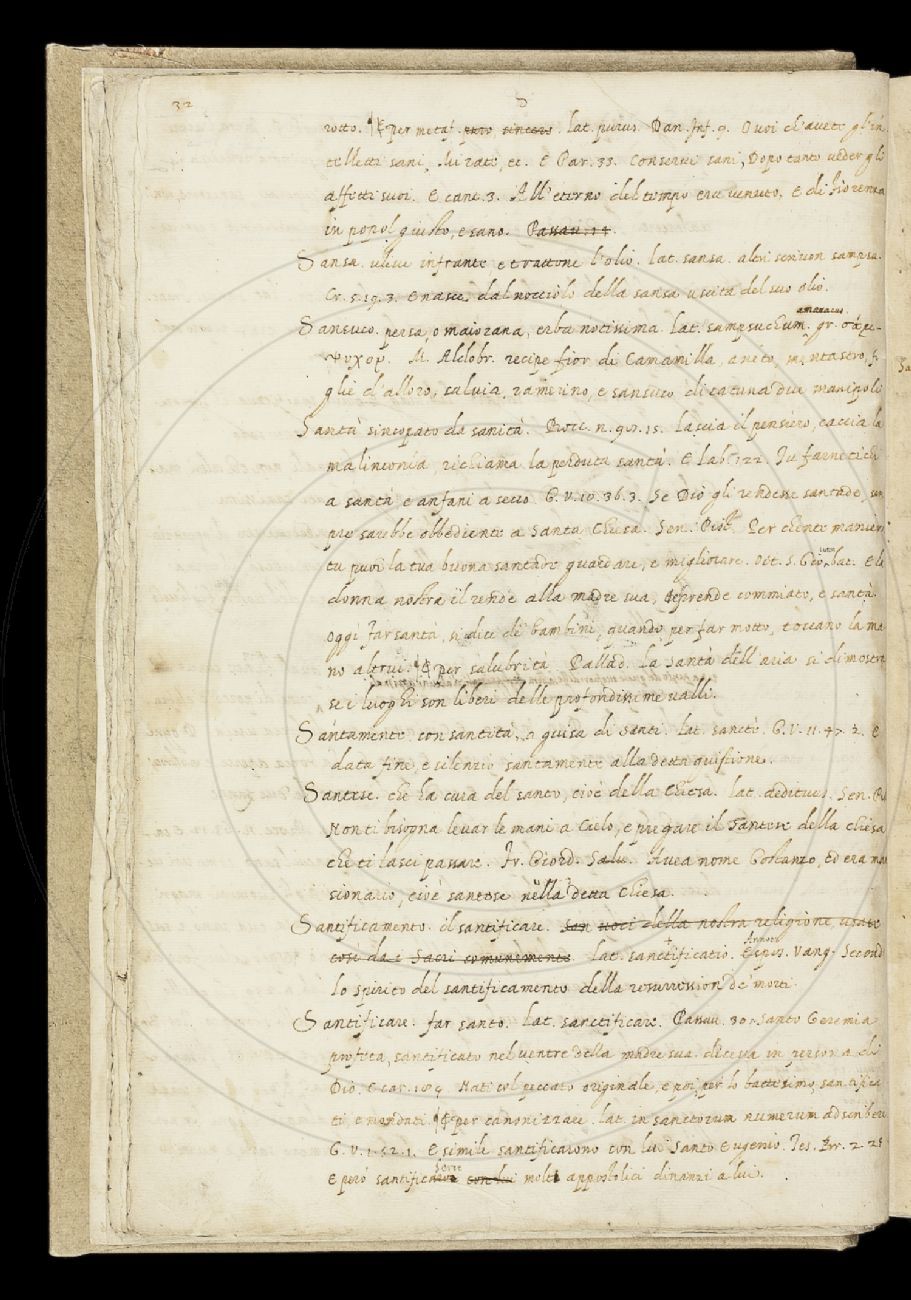 32
rotto. ¶ E per metaf. puro sincero. lat. purus. Dan. Inf. 9. O voi ch'avete gl'in
telletti sani, mirate, et. E Par. 33. Conservi sani, Dopo tanto veder gli
affetti suoi. E cant. 3. All' eterno dal tempo era venuto. E di Fiorenza
in popol giusto, e sano. Passav. 14.
Sansa. ulive infrante e trattone l'olio. lat. sansa. altri scrivon sampsa.
Cr. 5. 19. 3. E nasce, dal nocciolo della sansa uscita del suo olio.
amaracus
Sansuco. persa, o maiorana, erba notissima. lat. sampsuchum. gr. σάμ-
ψυχον. M. Aldobr. recipe fior di Camamilla, aneto, mentastro, fo
glie d'alloro, salvia, ramerino, e sansuco di catuna due manipoli
Santà sincopato da sanità. Bocc. n. 98. 15. lascia il pensiero, caccia la
malinconia, richiama la perduta santà. E Lab. 122. Tu farnetichi
a santà e anfani a secco. G. V. 10. 36. 3. Se Dio gli rendesse santade, sem
pre sarebbe obbediente a Santa Chiesa. Sen. Pist. Per chente maniera
tu puoi la tua buona santade guardare, e migliorare. Ott. S. Gio. bat. E la
donna nostra il rende alla madre sua, e prende commiato, e santà.
oggi far santà, si dice di bambini, quando per far motto, toccano la ma
no altrui. ¶ E per salubrità. Pallad. La santà dell'aria si dimostra
se i luoghi son liberi delle profondissime valli.
Santamente con santità, a guisa di santi. lat. sanctè. G. V. 11. 47. 2. E
data fine, e silenzio santamente alla detta quistione.
Santese. che ha cura del santo, cioè della Chiesa. lat. aedituus. Sen. Pis
Non ti bisogna levar le mani a Cielo, e pregare il Santese della chiesa
che ti lasci passare. Fr. Giord. Salv. Avea nome Costanzo, ed era man
sionario, cioè santese nella detta Chiesa.
Santificamento. il santificare. son voci della nostra religione, usate
così da i Sacri comunemente. lat. sanctificatio. Annot. Vang. Secondo
lo spirito del santificamento della resurression de' morti.
Santificare. far santo. lat. sanctificare. Passav. 30. Santo Geremia
profeta, santificato nel ventre della madre sua. diceva in persona di
Dio. E car. 109. Nati col peccato originale, e poi, per lo battesimo, santifica
ti, e mondati. ¶ E per canonizzare. lat. in sanctorum numerum adscribere
G. V. 1. 52. 1. E simile santificarono con lui Santo Eugenio. Tes. Br. 2. 25
E però santificaro con lui molti appostolici dinanzi a lui.